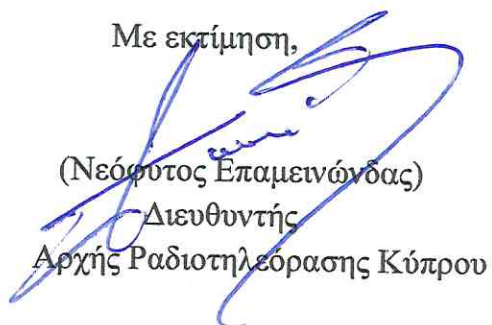 Με εκτίμηση,
(Νεόφυτος Επαμεινώνδας)
Διευθυντής
Αρχής Ραδιοτηλεόρασης Κύπρου